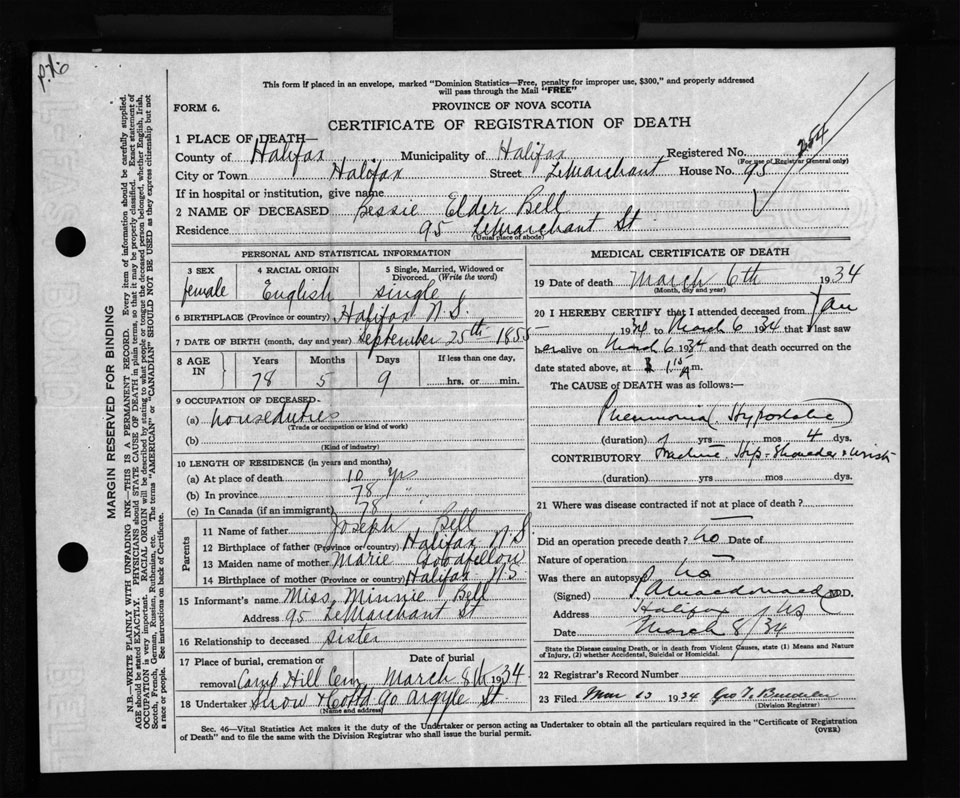 This form if placed in an envelope, marked "Dominion Statistics—Free, penalty for improper use, $300," and properly addressed
will pass through the Mail "FREE"
FORM 6.
PROVINCE OF NOVA SCOTIA
CERTIFICATE OF REGISTRATION OF DEATH
254
1 PLACE OF DEATH—
County of Halifax Municipality of Halifax Registered No.
(For use of Registrar General only)
City or Town Halifax Street LeMarchant House No. 95
If in hospital or institution, give name
2 NAME OF DECEASED Bessie Elder Bell
Residence 95 LeMarchant St
(Usual place of abode)
PERSONAL AND STATISTICAL INFORMATION
3 SEX female
4 RACIAL ORIGIN English
5 Single, Married, Widowed or Divorced. (Write the word) single
6 BIRTHPLACE (Province or country) Halifax N.S.
7 DATE OF BIRTH (month, day and year) September 25th 1855
8 AGE IN Years 78 Months 5 Days 9 If less than one day, hrs. or min.
9 OCCUPATION OF DECEASED—
(a) houseduties
(Trade or occupation or kind of work)
(b)
(Kind of industry)
10 LENGTH OF RESIDENCE (in years and months)
(a) At place of death 10 yrs
(b) In province 78 "
(c) In Canada (if an immigrant) 78
Parents
11 Name of father Joseph Bell
12 Birthplace of father (Province or country) Halifax N.S
13 Maiden name of mother Marie Goodfellow
14 Birthplace of mother (Province or country) Halifax N.S
15 Informant's name Miss Minnie Bell
Address 95 LeMarchant St
16 Relationship to deceased sister
17 Place of burial, cremation or removal Camp Hill Cem Date of burial March 8th 1934
18 Undertaker Snow & Co Ltd Argyle St.
(Name and address)
MEDICAL CERTIFICATE OF DEATH
19 Date of death March 6th 1934
(Month, day and year)
20 I HEREBY CERTIFY that I attended deceased from Jan
1934 to March 6 1934 that I last saw
her alive on March 6 1934 and that death occurred on the
date stated above, at 1.15 A m.
The CAUSE OF DEATH was as follows:—
Pneumonia (Hypostatic)
(duration) yrs mos 4 dys.
CONTRIBUTORY Fracture Hip - Shoulder & Wrist
(duration) yrs mos dys.
21 Where was disease contracted if not at place of death?
Did an operation precede death? no Date of
Nature of operation
Was there an autopsy no
(Signed) Macdonald M.D.
Address Halifax NS
Date March 8/34
State the Disease causing Death, or in death from Violent Causes, state (1) Means and
Nature of Injury, (2) whether Accidental, Suicidal or Homicidal.
22 Registrar's Record Number
23 Filed Mar 13 1934 Geo
(Division Registrar)
Sec. 46—Vital Statistics Act makes it duty of the Undertaker or person acting as Undertaker to obtain all the particulars required in the "Certificate of Registration
of Death" and to file the same with the Division Registrar who shall issue the burial permit.
(OVER)
MARGIN RESERVED FOR BINDING
N.B.—WRITE PLAINLY WITH UNFADING INK—THIS IS A PERMANENT RECORD. Every item of information should be carefully supplied.
AGE should be stated EXACTLY. PHYSICIANS should STATE CAUSE OF DEATH in plain terms, so that it may be properly classified. Exact statement of
OCCUPATION is very important. RACIAL ORIGIN will be described by stating to what people or tongue the deceased person belonged, whether English, Irish,
Scotch, French, German, Russian, Ruthenian, etc. The terms "AMERICAN" or "CANADIAN" SHOULD NOT BE USED as they express citizenship but not
a race or people. See instructions on back of Certificate.